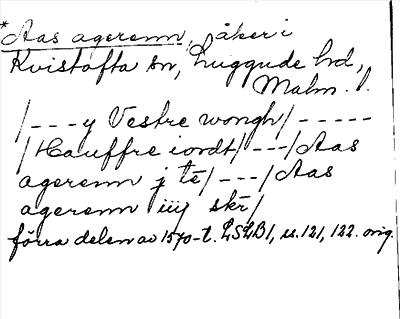 *Aas agerenn, åker i
Kvistofta sn, Luggude hd,
Malm. l.
/---y Vestre wongh/-----
/Hauffre iordt/---/Aas
agerenn j tē/---/Aas
agerenn iiij skr̄/
förra delen av 1570-t. LSLB1, s. 121, 122. orig.